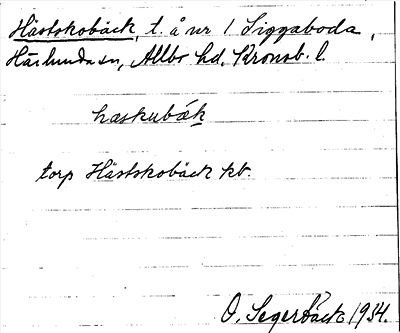 Hästskobäck, t. å nr 1 Siggaboda,
Härlunda sn, Allbo hd, Kronob. l.
haskubäk
torp Hästskobäck kt.
O. Segerbäck 1934.